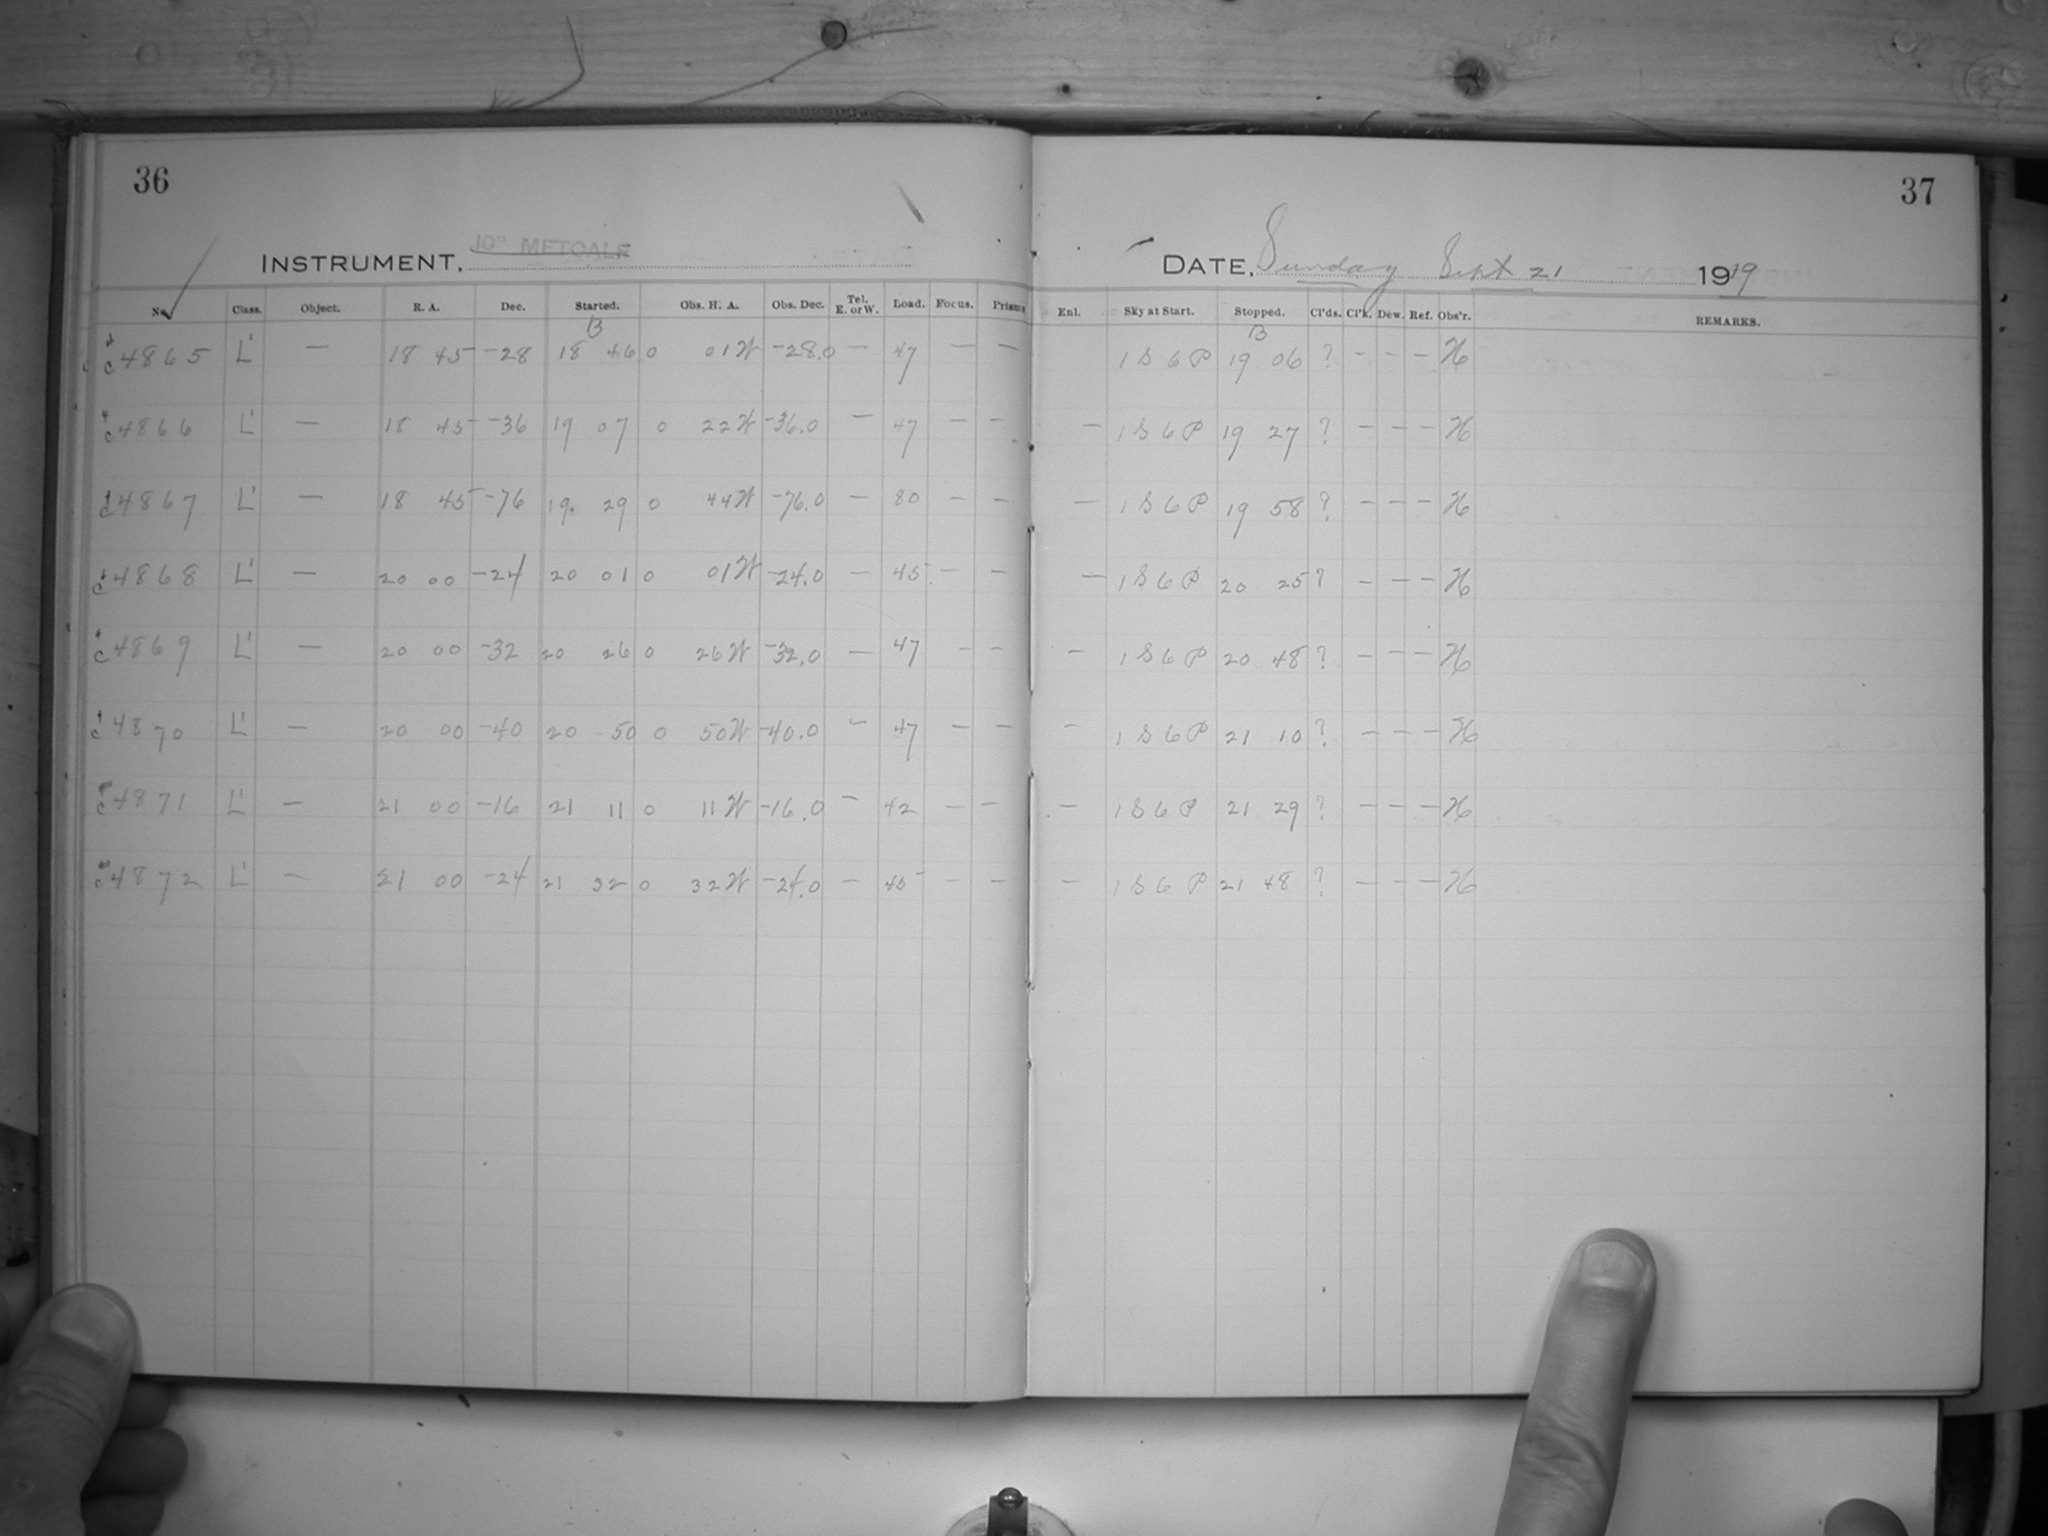 36
37
INSTRUMENT, 10" METCALF
DATE, Sunday Sept 21 1919
No. Class. Object. R. A. Dec. Started. Obs. H. A. Obs. Dec. Tel. E. or W. Load. Focus. Prisms Enl. Sky at Start. Stopped. Cl'ds. Cl'k. Dew. Ref. Obs'r. REMARKS.
B B
c4865 L' — 18 45 -28 18 46 0 01 W -28.0 — 47 — — 1 S 6 P 19 06 ? — — — H
c4866 L' — 18 45 -36 19 07 0 22 W -36.0 — 47 — — — 1 S 6 P 19 27 ? — — — H
c4867 L' — 18 45 -76 19 29 0 44 W -76.0 — 80 — — — 1 S 6 P 19 58 ? — — — H
c4868 L' — 20 00 -24 20 01 0 01 W -24.0 — 45 — — — 1 S 6 P 20 25 ? — — — H
c4869 L' — 20 00 -32 20 26 0 26 W -32.0 — 47 — — — 1 S 6 P 20 48 ? — — — H
c4870 L' — 20 00 -40 20 50 0 50 W -40.0 — 47 — — — 1 S 6 P 21 10 ? — — — H
c4871 L' — 21 00 -16 21 11 0 11 W -16.0 — 42 — — — 1 S 6 P 21 29 ? — — — H
c4872 L' — 21 00 -24 21 32 0 32 W -24.0 — 45 — — — 1 S 6 P 21 48 ? — — — H